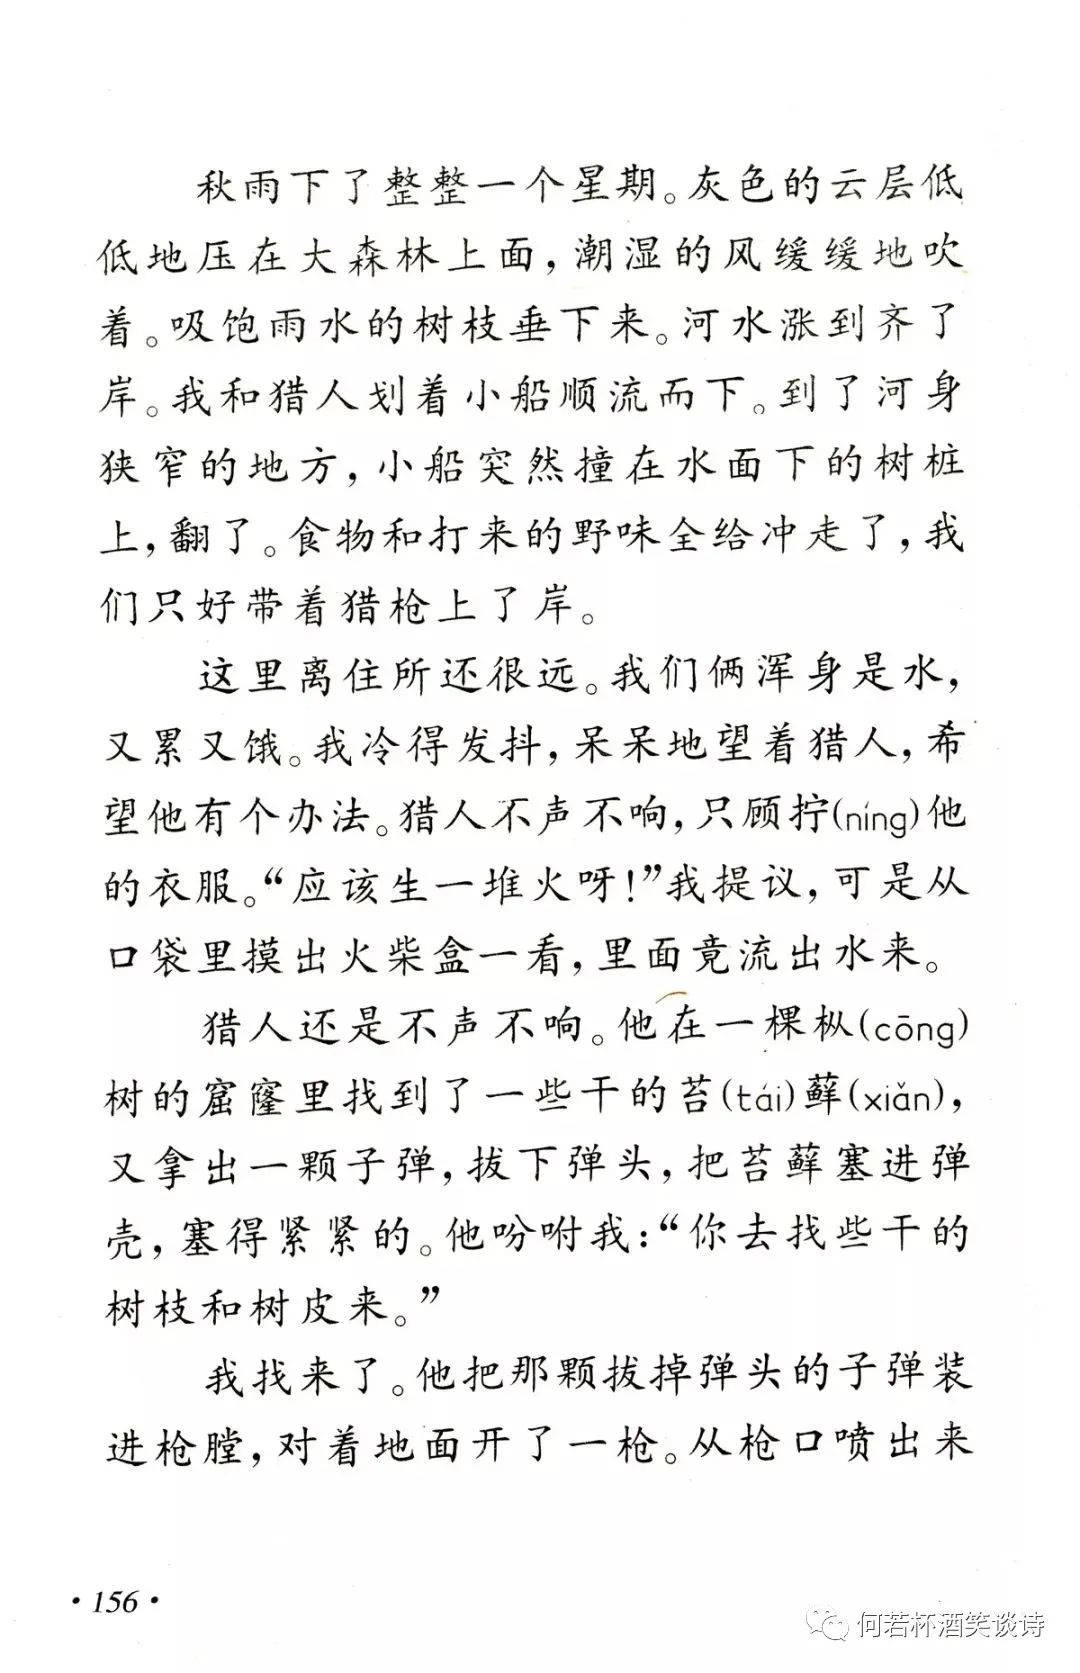 秋雨下了整整一个星期。灰色的云层低
低地压在大森林上面，潮湿的风缓缓地吹
着。吸饱雨水的树枝垂下来。河水涨到齐了
岸。我和猎人划着小船顺流而下。到了河身
狭窄的地方，小船突然撞在水面下的树桩
上，翻了。食物和打来的野味全给冲走了，我
们只好带着猎枪上了岸。
这里离住所还很远。我们俩浑身是水，
又累又饿。我冷得发抖，呆呆地望着猎人，希
望他有个办法。猎人不声不响，只顾拧(níng)他
的衣服。“应该生一堆火呀！”我提议，可是从
口袋里摸出火柴盒一看，里面竟流出水来。
猎人还是不声不响。他在一棵枞(cōng)
树的窟窿里找到了一些干的苔(tái)藓(xiǎn)，
又拿出一颗子弹，拔下弹头，把苔藓塞进弹
壳，塞得紧紧的。他吩咐我：“你去找些干的
树枝和树皮来。”
我找来了。他把那颗拔掉弹头的子弹装
进枪膛，对着地面开了一枪。从枪口喷出来
·156·
何若杯酒笑谈诗